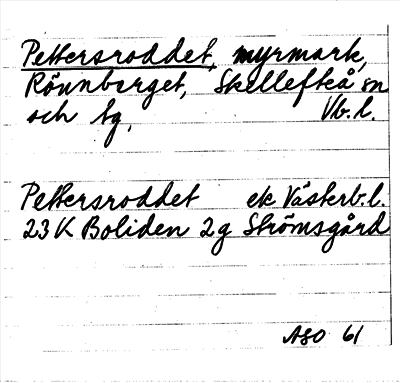 Pettersroddet, myrmark,
Rönnberget, Skellefteå sn
och tg, Vb. l.
Pettersroddet ek Västerb. l.
23 K Boliden 2g Strömsgård
ASO 61